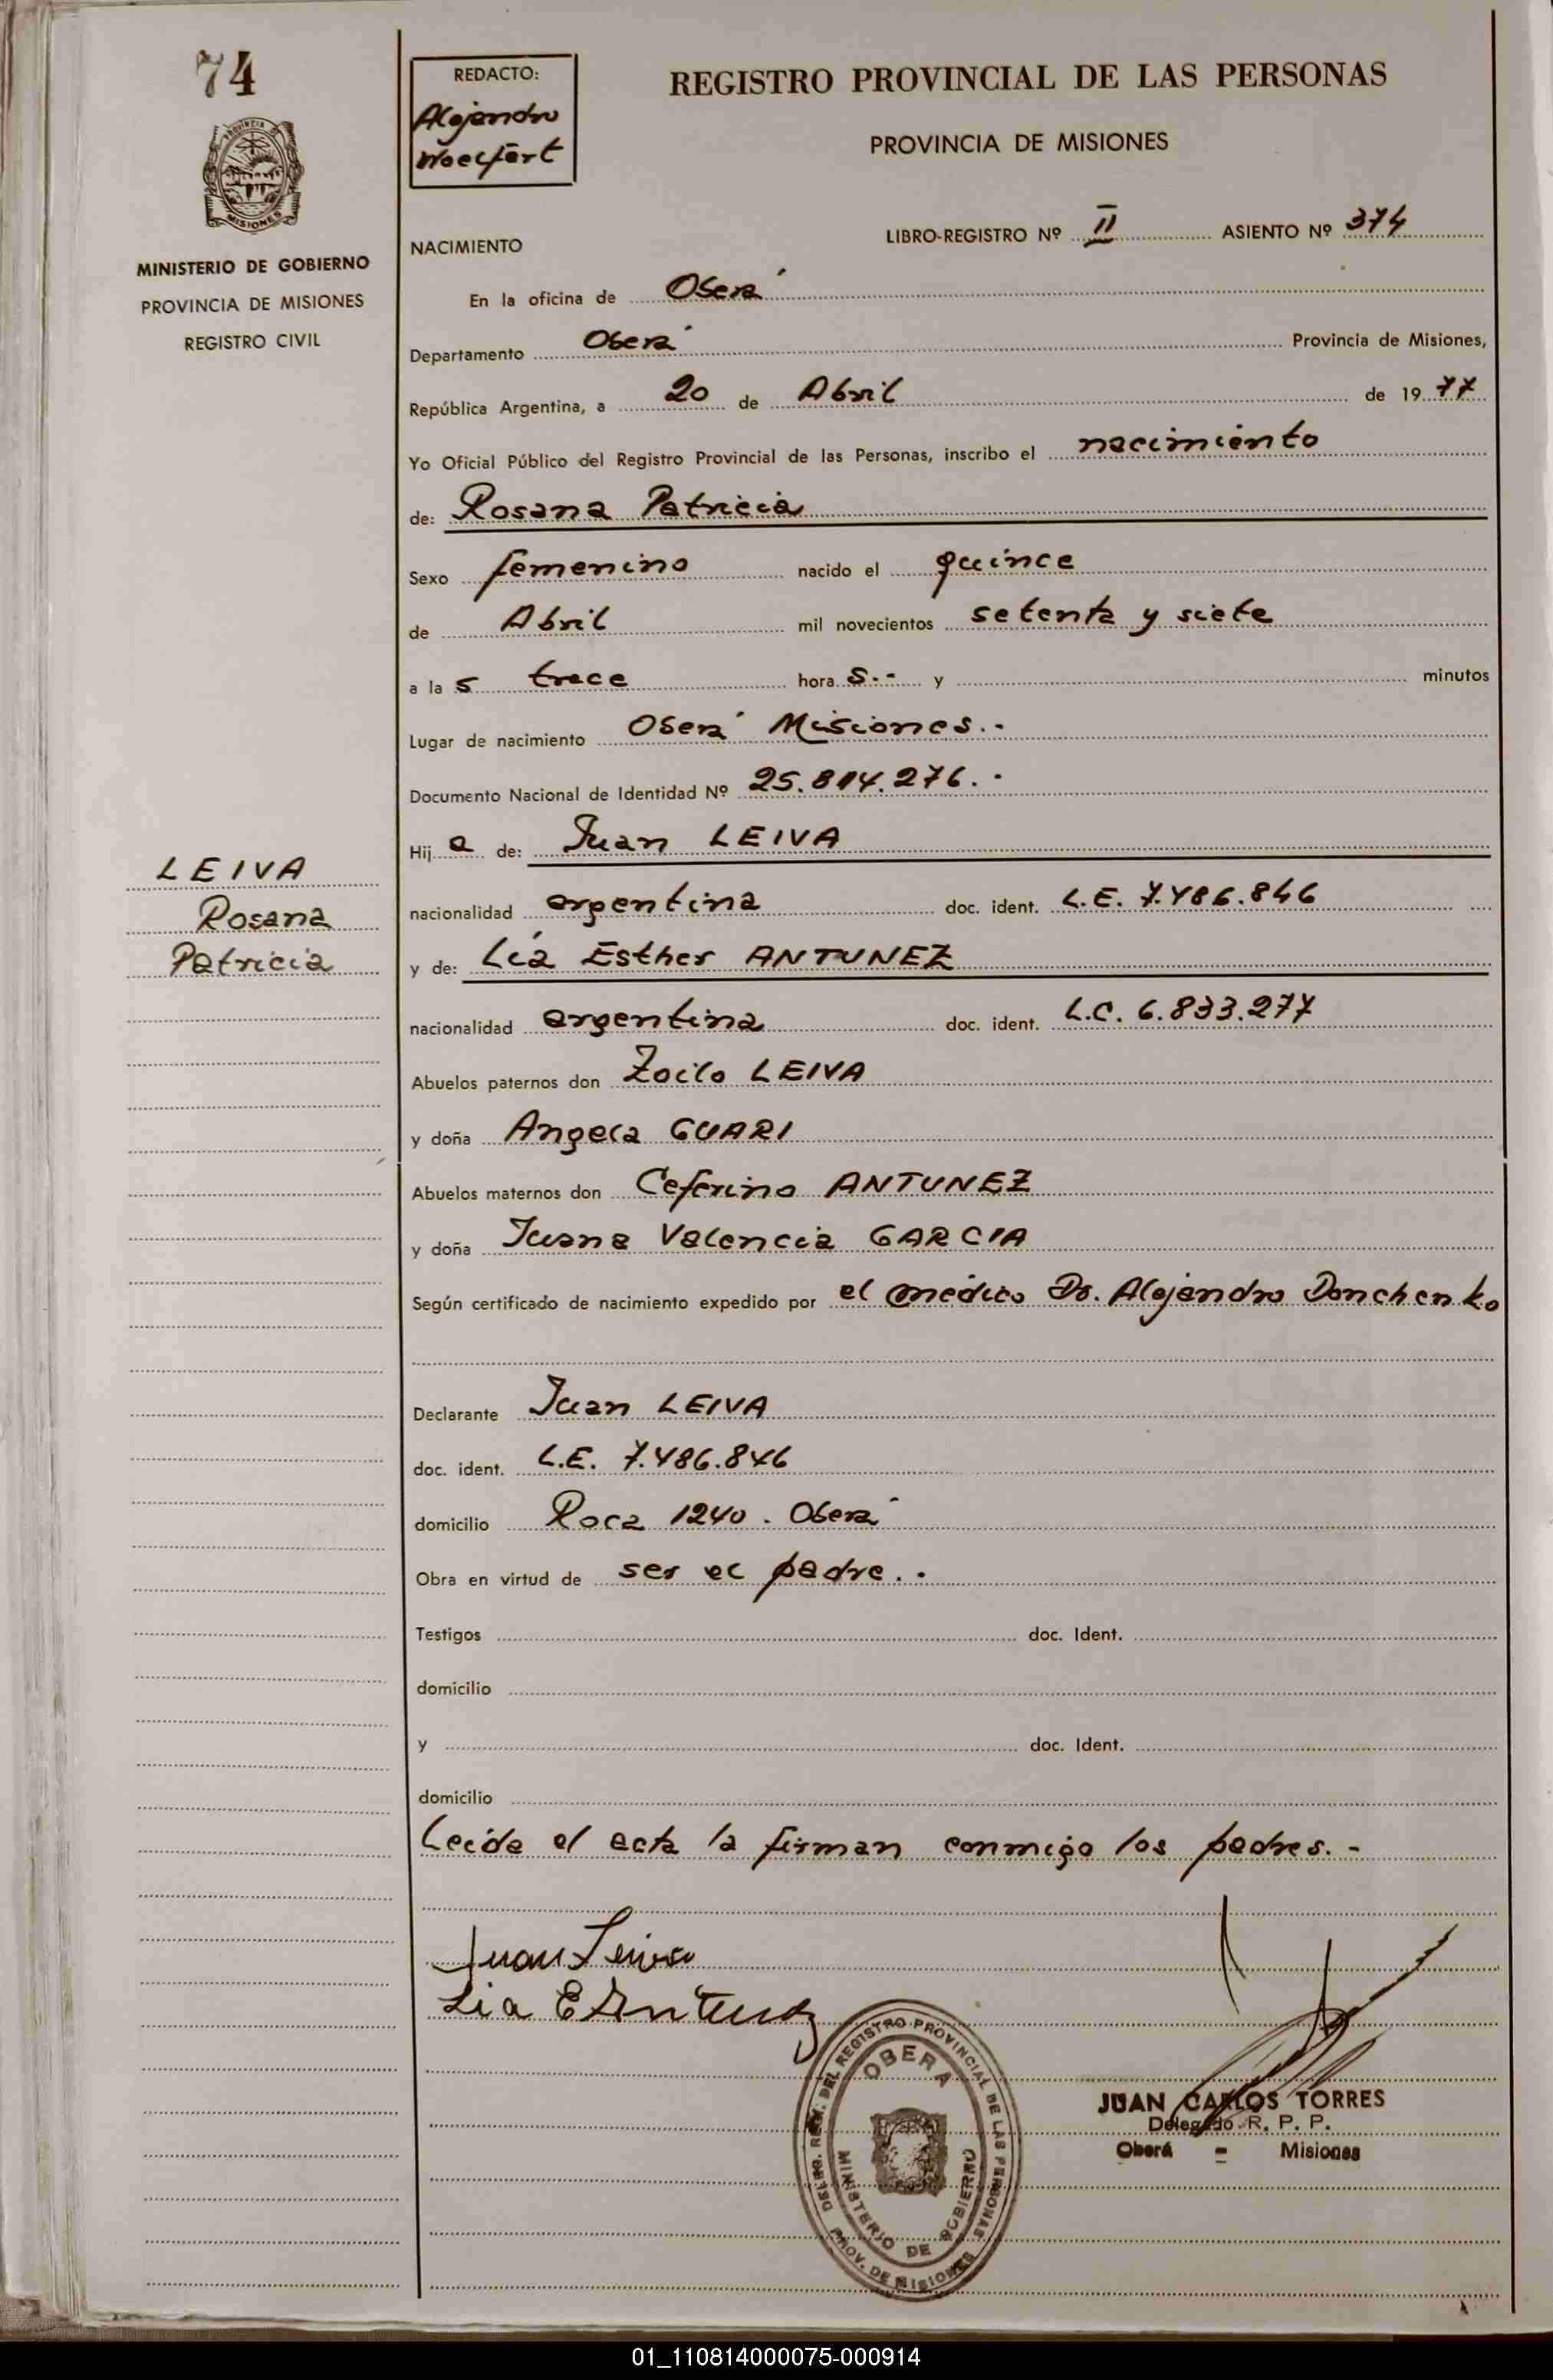 74
REDACTO:
Alejandro
REGISTRO PROVINCIAL DE LAS PERSONAS
PROVINCIA DE MISIONES
MISIONES
MINISTERIO DE GOBIERNO
PROVINCIA DE MISIONES
REGISTRO CIVIL
LIBRO-REGISTRO Nº II ASIENTO Nº 374
NACIMIENTO
En la oficina de Oberá
Departamento Oberá Provincia de Misiones,
República Argentina, a 20 de Abril de 1977
Yo Oficial Público del Registro Provincial de las Personas, inscribo el nacimiento
de: Rosana Patricia
Sexo femenino nacido el quince
de Abril mil novecientos setenta y siete
a las trece horas.- y minutos
Lugar de nacimiento Oberá Misiones.-
Documento Nacional de Identidad Nº 25.814.276.-
Hija de: Juan LEIVA
LEIVA
Rosana
Patricia
nacionalidad argentina doc. ident. L.E. 7.486.846
y de: Lía Esther ANTUNEZ
nacionalidad argentina doc. ident. L.C. 6.833.277
Abuelos paternos don Zoilo LEIVA
y doña Angela GUARI
Abuelos maternos don Ceferino ANTUNEZ
y doña Juana Valencia GARCIA
Según certificado de nacimiento expedido por el médico Dr. Alejandro Donchenko
Declarante Juan LEIVA
doc. ident. L.E. 7.486.846
domicilio Roca 1240. Oberá
Obra en virtud de ser el padre.-
Testigos doc. Ident.
domicilio
y doc. Ident.
domicilio
Leida el acta la firman conmigo los padres.-
Juan Leiva
Lia E Antunez
DEL REGISTRO PROVINCIAL DE LAS PERSONAS
OBERA
MINISTERIO DE GOBIERNO
PROV. DE MISIONES
JUAN CARLOS TORRES
Delegado R. P. P.
Oberá - Misiones
01_110814000075-000914